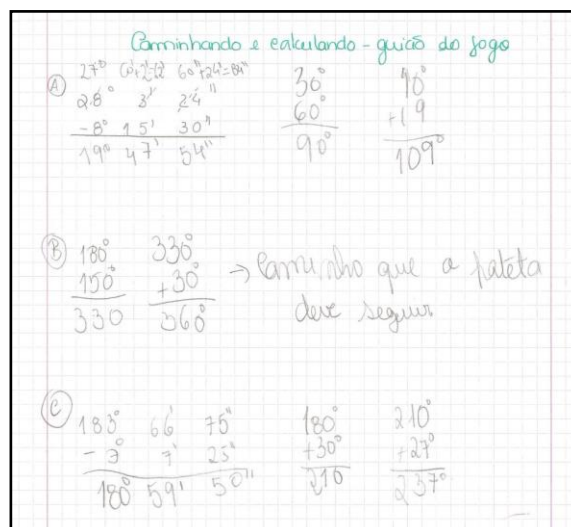 Caminhando e calculando - guião do jogo
A
27° 60'+2'=62' 60"+24"=84"
28° 3' 24"
-8° 15' 30"
19° 47' 54"
30°
60°
90°
90°
+19
109°
B
180°
150°
330
330°
+30°
360°
→ Caminho que a pateta
deve seguir
C
183° 66' 75"
-3° 7' 25"
180° 59' 50"
180°
+30°
210
210°
+27°
237°